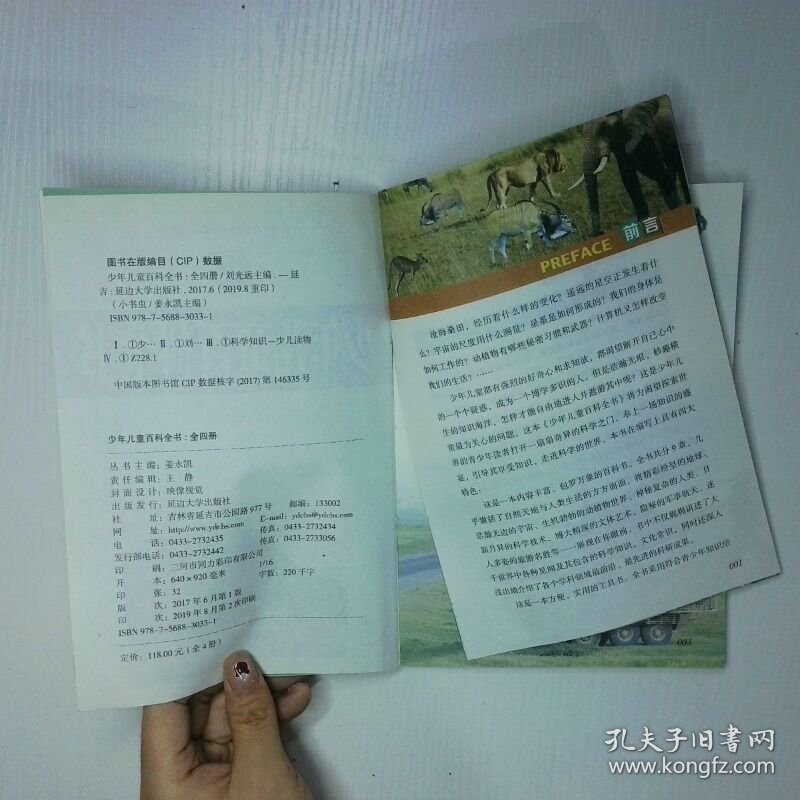 图书在版编目(CIP)数据
少年儿童百科全书：全四册/刘光远主编.——延
吉：延边大学出版社，2017.6（2019.8重印）
（小书虫/姜永凯主编）
ISBN 978-7-5688-3033-1
Ⅰ.①少… Ⅱ.①刘… Ⅲ.①科学知识—少儿读物
Ⅳ.①Z228.1
中国版本图书馆CIP数据核字(2017)第146335号
少年儿童百科全书：全四册
丛书主编：姜永凯
责任编辑：王 静
封面设计：映像视觉
出版发行：延边大学出版社
社 址：吉林省延吉市公园路977号 邮编：133002
网 址：http://www.ydcbs.com E-mail：ydcbs@ydcbs.com
电 话：0433-2732435 传真：0433-2732434
发行部电话：0433-2732442 传真：0433-2733056
印 刷：三河市同力彩印有限公司
开 本：640×920毫米 1/16
印 张：32 字数：220千字
版 次：2017年6月第1版
印 次：2019年8月第2次印刷
ISBN 978-7-5688-3033-1
定价：118.00元（全4册）
PREFACE 前言
沧海桑田，经历着什么样的变化？遥远的星空正发生着什
么？宇宙的尺度用什么测量？星系是如何形成的？我们的身体是
如何工作的？动植物有哪些秘密习惯和武器？计算机又怎样改变
我们的生活？……
少年儿童都有强烈的好奇心和求知欲，都渴望解开自己心中
的一个个疑惑，成为一个博学多识的人，但是浩瀚无垠、妙趣横
生的知识海洋，怎样才能自由地进入并遨游其中呢？这是少年儿
童最为关心的问题。这本《少年儿童百科全书》将为渴望探索世
界的青少年读者打开一扇扇奇异的科学之门，奉上一场知识的盛
宴，引导其享受知识、走进科学的世界。本书在编写上具有四大
特色：
这是一本内容丰富、包罗万象的百科书。全书共分9章，几
乎囊括了自然天地与人类生活的方方面面，将精彩纷呈的地球、
浩瀚无边的宇宙、生机勃勃的动植物世界、神秘复杂的人类、日
新月异的科学技术、博大精深的文体艺术、隐秘的军事航天、迷
人多姿的旅游名胜等一一展现在你眼前。书中不仅娓娓讲述了大
千世界中各种见闻及其包含的科学知识、文化常识，同时还深入
浅出地介绍了各个学科领域最前沿、最先进的科研成果。
这是一本方便、实用的工具书。全书采用符合青少年知识结
001
003
孔夫子旧书网
www.kongfz.com